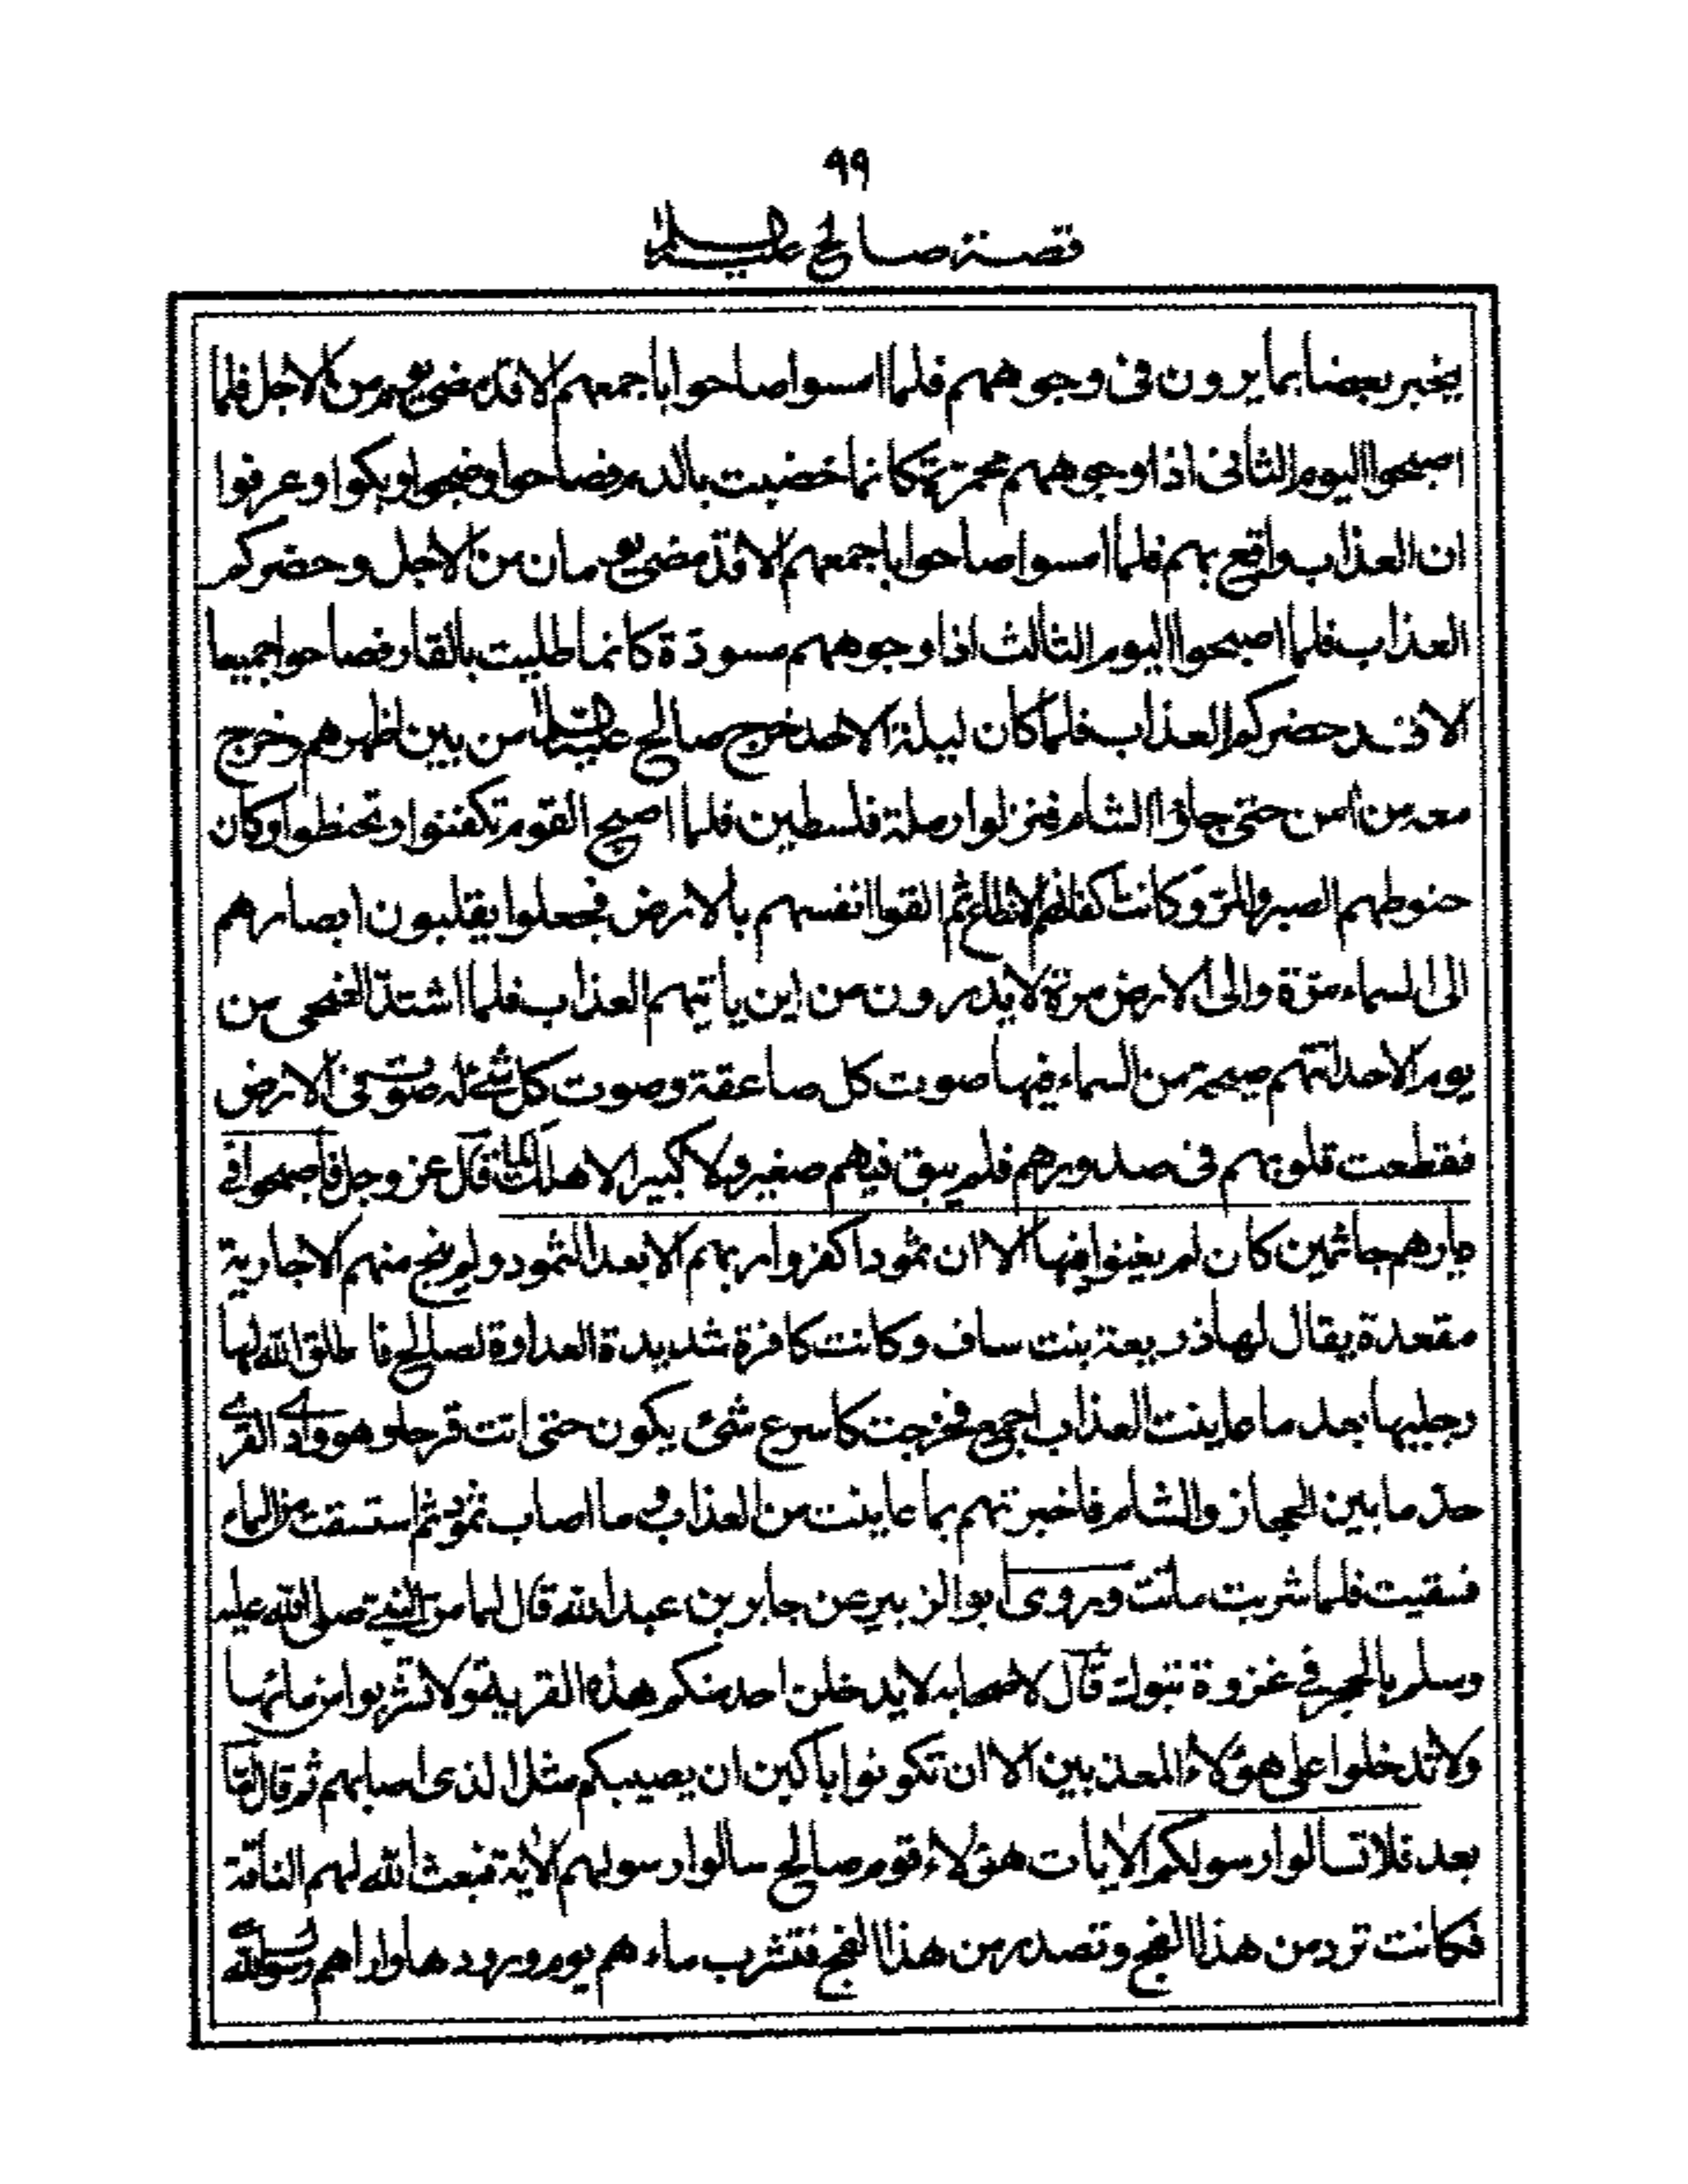 ٩٩
قصة صالح عليه السلام
يخبر بعضا بما يرون فى وجوههم فلما امسوا صاحوا باجمعهم الا قد مضى يوم من الاجل فلما
اصبحوا اليوم الثانى اذا وجوههم محمرة كانما خضبت بالدم فصاحوا وضجوا وبكوا وعرفوا
ان العذاب واقع بهم فلما امسوا صاحوا باجمعهم الا قد مضى يومان من الاجل وحضركم
العذاب فلما اصبحوا اليوم الثالث اذا وجوههم مسودّة كانما طليت بالقار فصاحوا جميعا
الا قد حضركم العذاب فلما كان ليلة الاحد خرج صالح عليه السلام من بين اظهرهم وخرج
معه من امن حتى جاؤا الشام فنزلوا رملة فلسطين فلما اصبح القوم تكفنوا وتحنطوا وكان
حنوطهم الصبر والمرّ وكانت اكفانهم الانطاع ثم القوا انفسهم بالارض فجعلوا يقلبون ابصارهم
الى السماء مرّة والى الارض مرة لا يدرون من اين ياتيهم العذاب فلما اشتدّ الضحى من
يوم الاحد اتتهم صيحة من السماء فيها صوت كل صاعقة وصوت كل شئ له صوت فى الارض
فقطعت قلوبهم فى صدورهم فلم يبق فيهم صغير ولا كبير الا هلك كما قال عز وجل فاصبحوا فے
ديارهم جاثمين كان لم يغنوا فيها الا ان ثمودا كفروا ربهم الا بعدا لثمود ولم ينج منهم الا جارية
مقعدة يقال لها ذريعة بنت ساف وكانت كافرة شديدة العداوة لصالح فاطلق الله لها
رجليها بعد ما عاينت العذاب اجمع فخرجت كاسرع شئ يكون حتى اتت قرحا وهو وادے القرے
حدّ ما بين الحجاز والشام فاخبرتهم بما عاينت من العذاب وما اصاب ثمود ثم استسقت من الماء
فسقيت فلما شربت ماتت وروى ابو الزبير عن جابر بن عبد الله قال لما مرّ النبے صلى الله عليه
وسلم بالحجر فے غزوة تبوك قال لاصحابه لا يدخلن احد منكم هذه القرية ولا تشربوا من مائها
ولا تدخلوا على هؤلاء المعذبين الا ان تكونوا باكين ان يصيبكم مثل الذى اصابهم ثم قال امّا
بعد فلا تسالوا رسولكم الايات هؤلاء قوم صالح سالوا رسولهم الاية فبعث الله لهم الناقة
فكانت ترد من هذا الفج وتصدر من هذا الفج فتشرب ماءهم يوم ورودها واراهم رسول الله